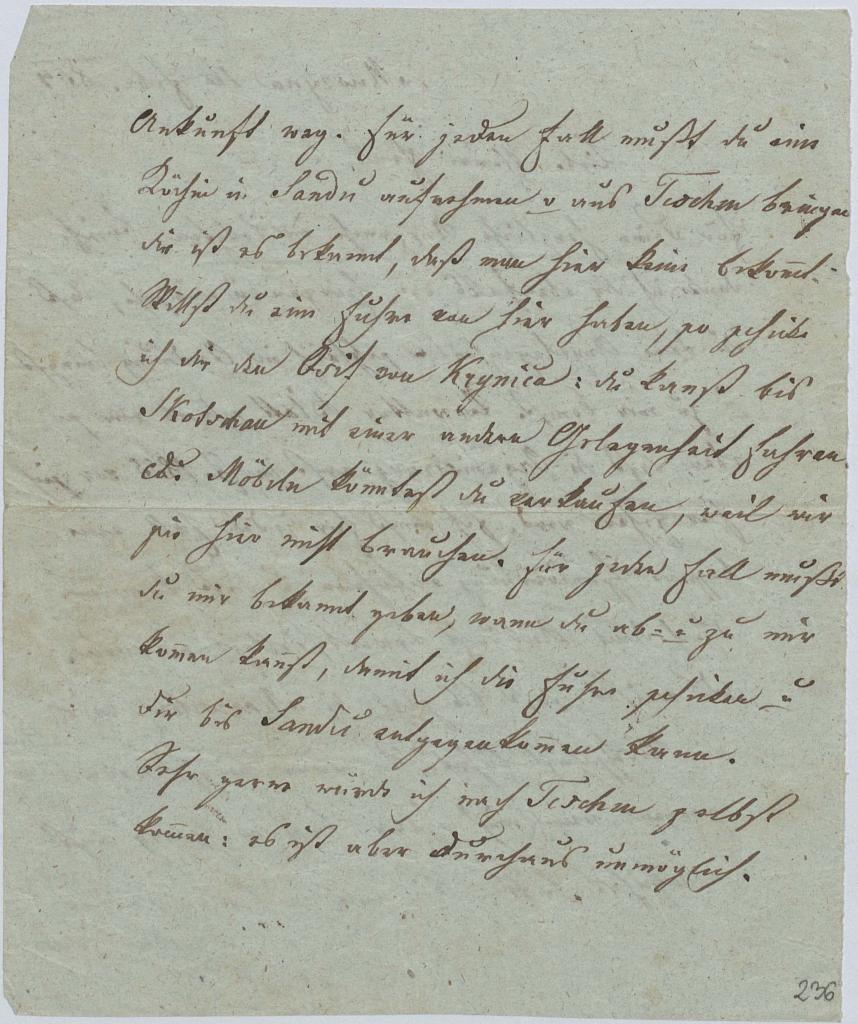 Ankunft weg. Für jeden Fall mußt du eine
Köchin in Sandu aufnehmen o aus Teschen bringen
dir ist es bekannt, daß man hier keine bekommt.
Willst du eine Fuhre von hier haben, so schicke
ich dir den von Krynica: du kanst bis
Skotschau mit einer andern Gelegenheit fahren.
Möbeln könntest du verkaufen, weil wir
sie hier nicht brauchen. Für jeden Fall mußt
du mir bekannt geben, wann du ab= u zu mir
kommen kannst, damit ich die Fuhre schicken u
dir bis Sandu entgegenkommen kann.
Sehr gerne würde ich nach Teschen selbst
kommen: es ist aber durchaus unmöglich.
236